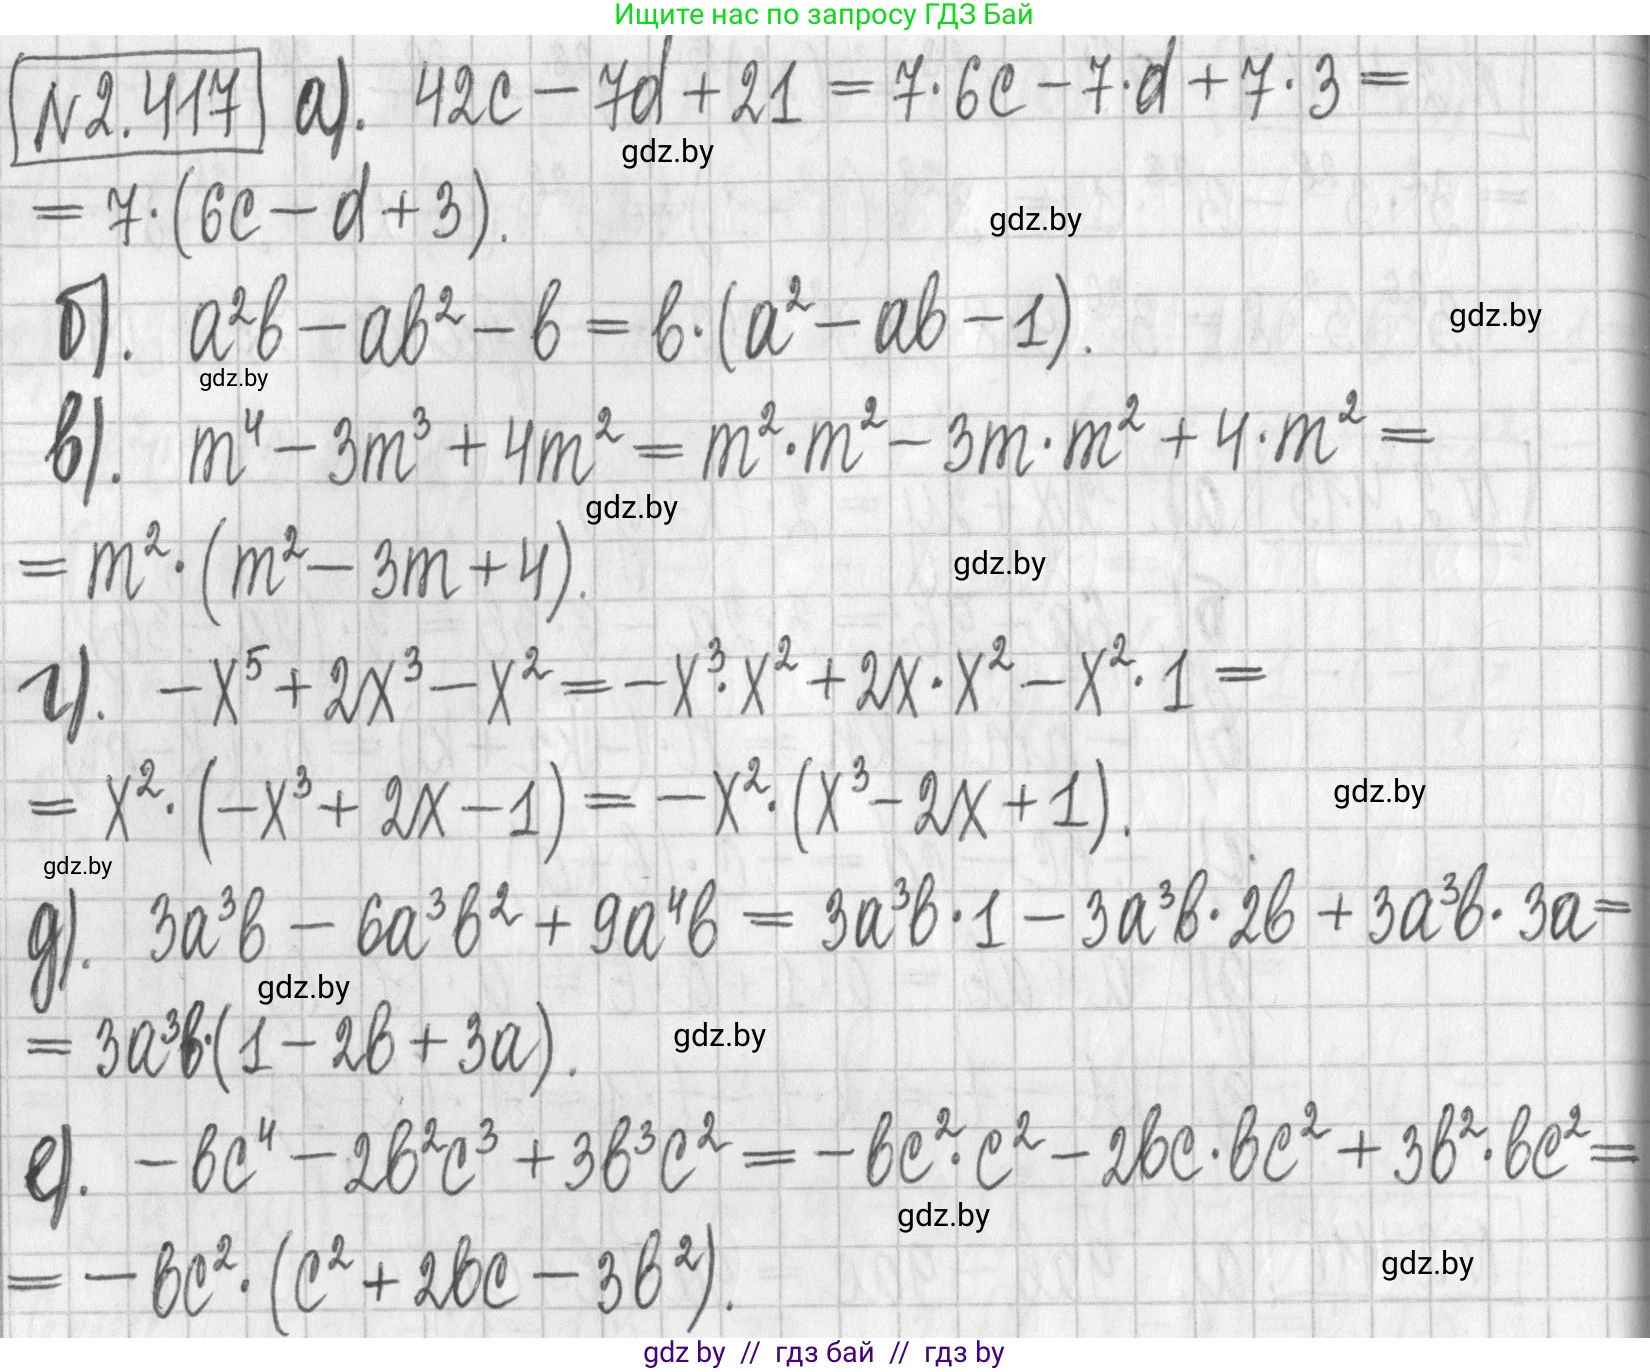 Ищите нас по запросу ГДЗ Бай
№2.417 а). 42c − 7d + 21 = 7·6c − 7·d + 7·3 =
gdz.by
= 7·(6c − d + 3).
gdz.by
б). a²b − ab² − b = b·(a² − ab − 1).
gdz.by
gdz.by
в). m⁴ − 3m³ + 4m² = m²·m² − 3m·m² + 4·m² =
gdz.by
= m²·(m² − 3m + 4).
gdz.by
г). −x⁵ + 2x³ − x² = −x³·x² + 2x·x² − x²·1 =
= x²·(−x³ + 2x − 1) = −x²·(x³ − 2x + 1).
gdz.by
gdz.by
д). 3a³b − 6a³b² + 9a⁴b = 3a³b·1 − 3a³b·2b + 3a³b·3a =
gdz.by
= 3a³b·(1 − 2b + 3a).
gdz.by
е). −bc⁴ − 2b²c³ + 3b³c² = −bc²·c² − 2bc·bc² + 3b²·bc² =
gdz.by
= −bc²·(c² + 2bc − 3b²).
gdz.by
gdz by // гдз бай // гдз by